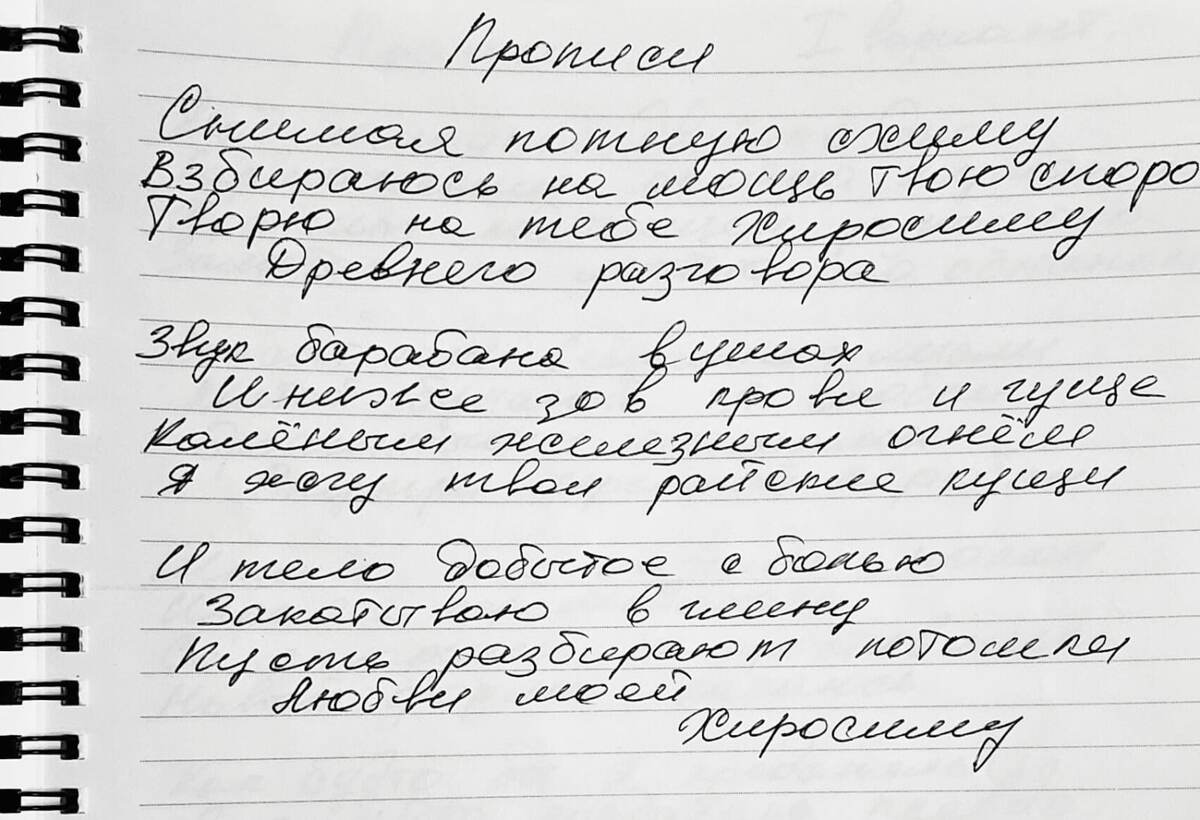 Прописи
Снимая потную схиму
Взбираюсь на мощь твою скоро
Творю на тебе Хиросиму
Древнего разговора
Звук барабана в ушах
И ниже зов крови и гуще
Калёным железным огнём
Я жгу твои райские кущи
И тело добытое с болью
Закатываю в глину
Пусть разбирают потомки
Любви моей
Хиросиму